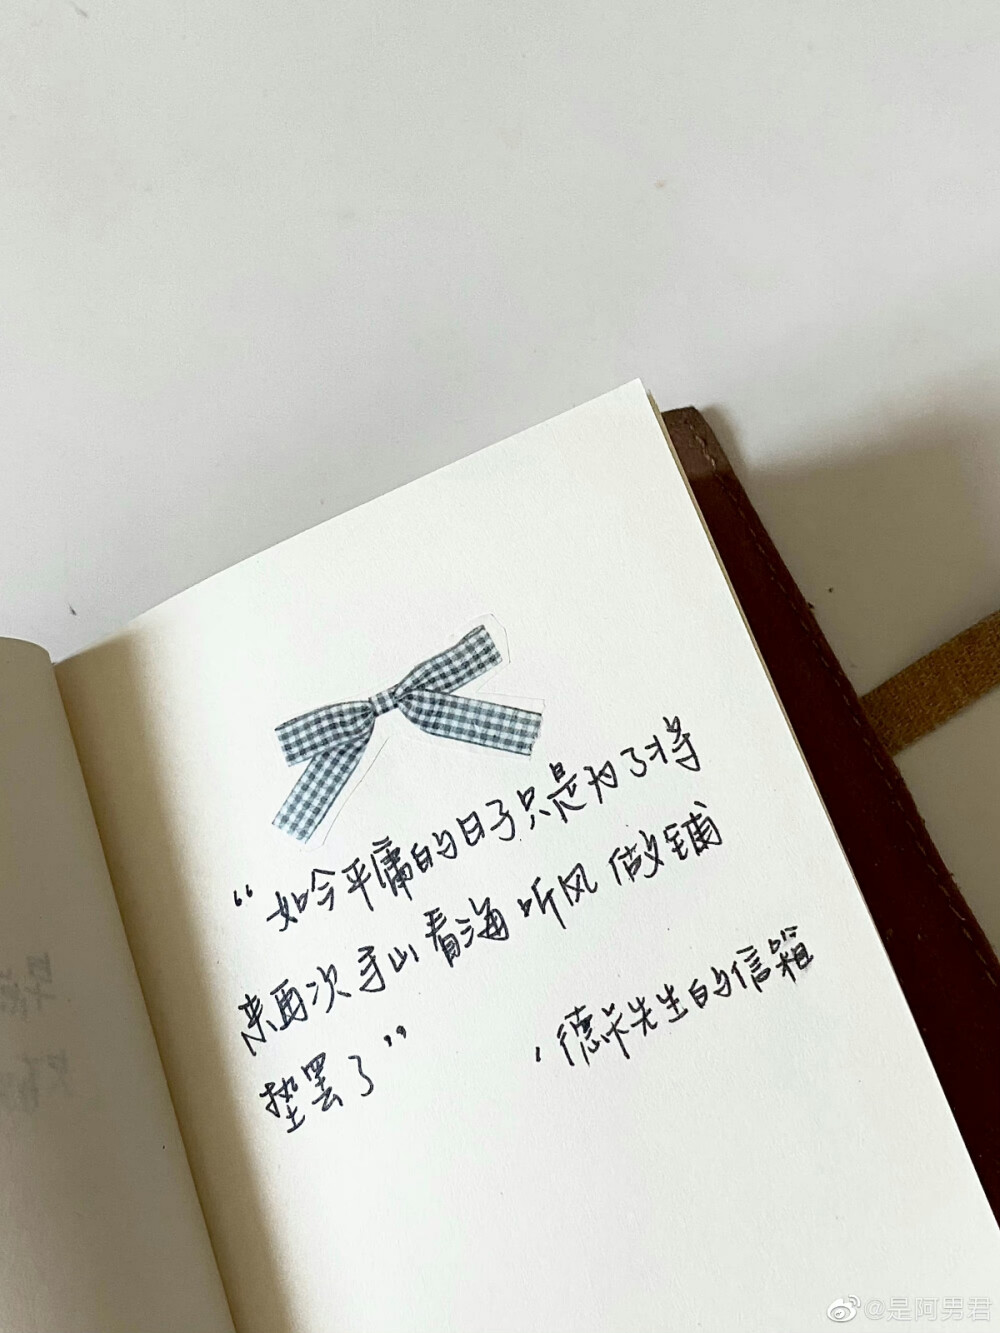 “如今平庸的日子只是为了将
来再次寻山看海听风做铺
垫罢了”
,德卡先生的信箱
@是阿男君